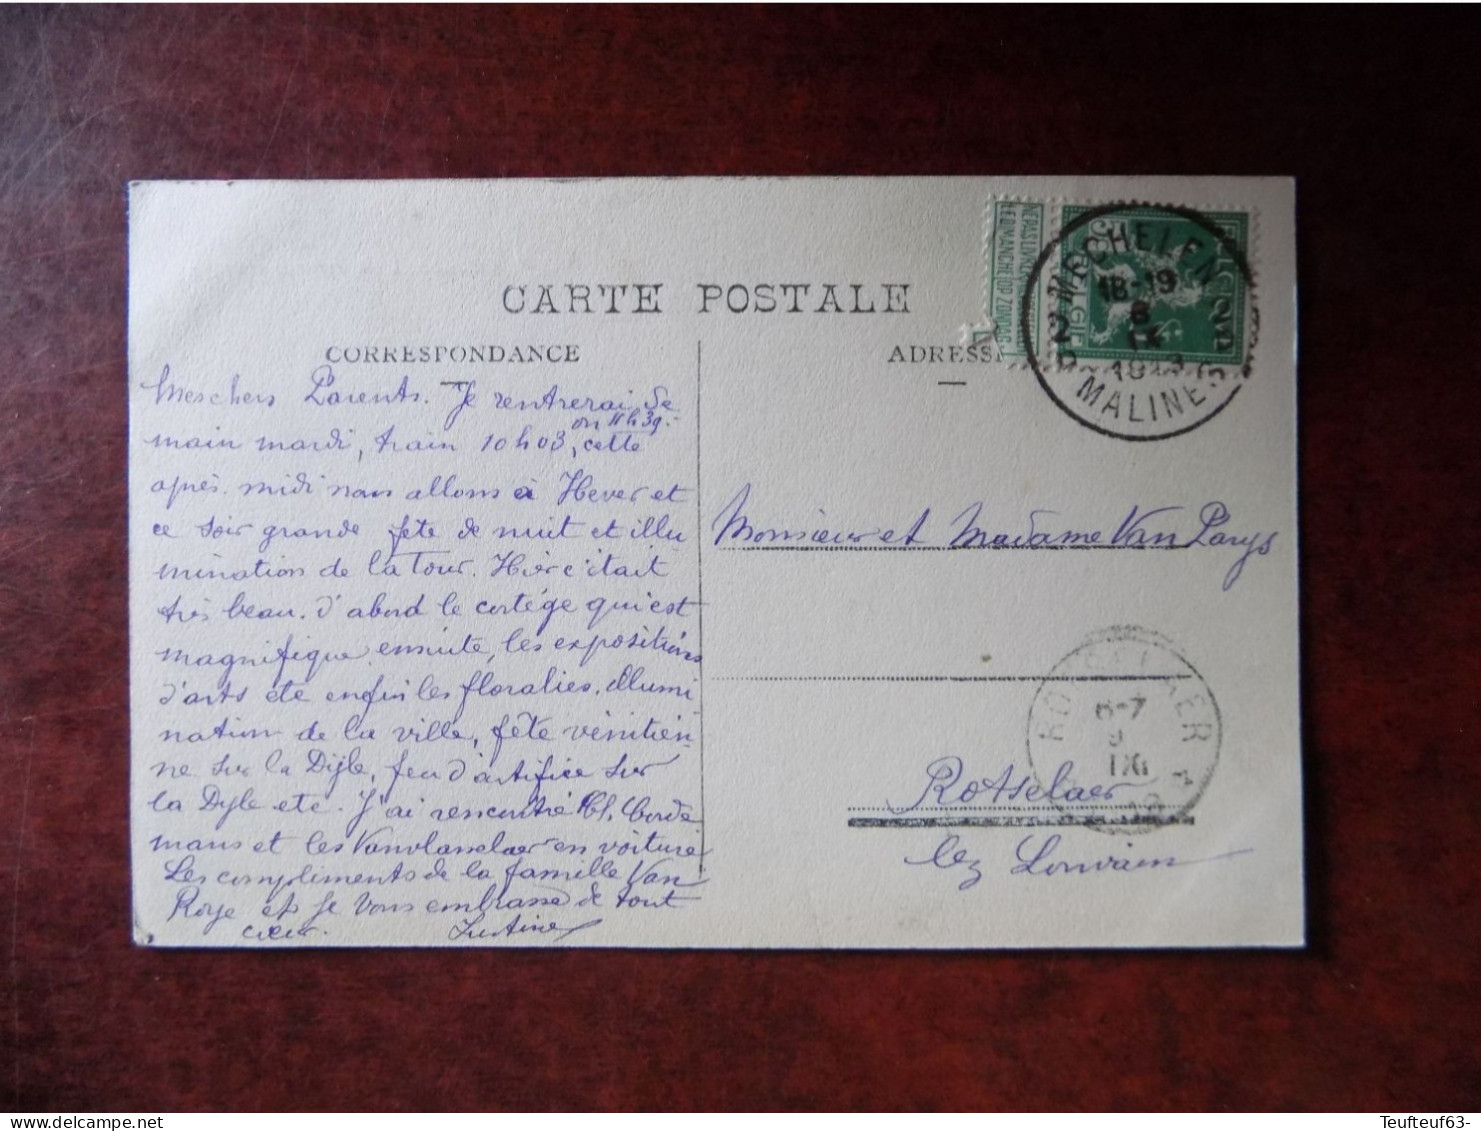 CARTE POSTALE
CORRESPONDANCE
Mes chers Parents. Je rentrerai de
main mardi, train 10h03, ou 11h39. cette
après-midi nous allons à Hever et
ce soir grande fête de nuit et illu
mination de la Tour. Hier c'était
très beau. d'abord le cortège qui est
magnifique ensuite, les expositions
d'arts etc enfin les floralies. illumi
nation de la ville, fête vénitien-
ne sur la Dijle, feu d'artifice sur
la Dyle etc. J'ai rencontré
mans et les Vanvlasselaer en voiture
Les compliments de la famille Van
Roye et je vous embrasse de tout
cœur. Justine
ADRESSE
NE PAS LIVRER
LE DIMANCHE
ZONDAG
5
BELGIE
MECHELEN
2
18-19
8
IX
1913
2
MALINES
Monsieur et Madame Van Parys
ROTSELAER
6-7
9
IX
Rotselaer
lez Louvain
Teufteuf63-